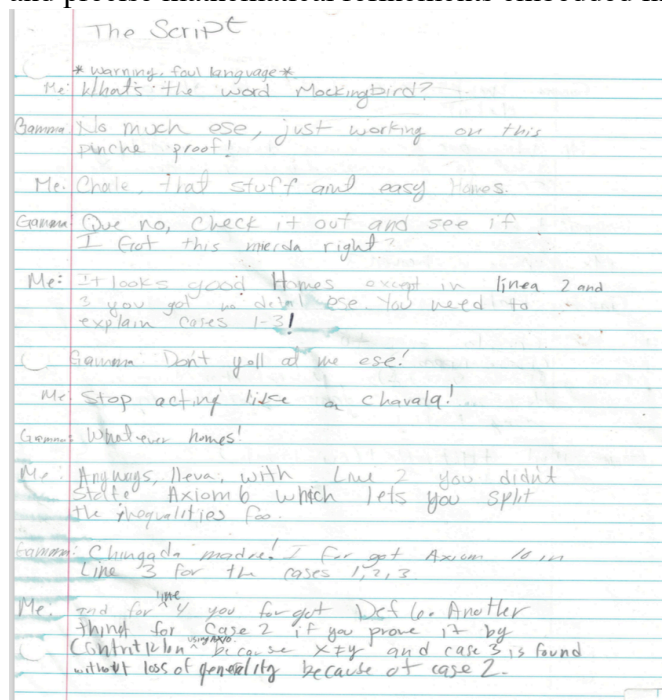 The Script
* Warning, foul language *
Me: What's the word Mockingbird?
Gamma: No much ese, just working on this
pinche proof!
Me: Chale, that stuff aint easy Homes.
Gamma: Que no, check it out and see if
I Got this mierda right?
Me: It looks good Homes except in linea 2 and
3 you got no ese. You need to
explain cases 1-3!
Gamma: Don't yell at me ese!
Me: Stop acting like a chavala!
Gamma: Whatever homes!
Me: Anyways, lleva, with Line 2 you didn't
state Axiom 6 which lets you split
the inequalities foo.
Gamma: Chingada madre! I forgot Axiom 10 in
Line 3 for the cases 1,2,3
Me. and for line 4 you forgot Def 6. Another
thing for Case 2 if you prove it by
because x≠y and case 3 is found
without loss of generality because of case 2.